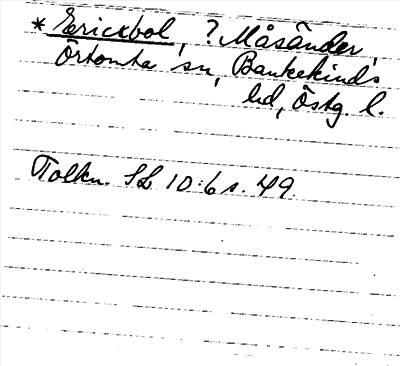 * Ericxbol, ? Måsänder,
Örtomta sn, Bankekinds
hd, Östg. l.
Tolkn. SL 10:6 s. 49.